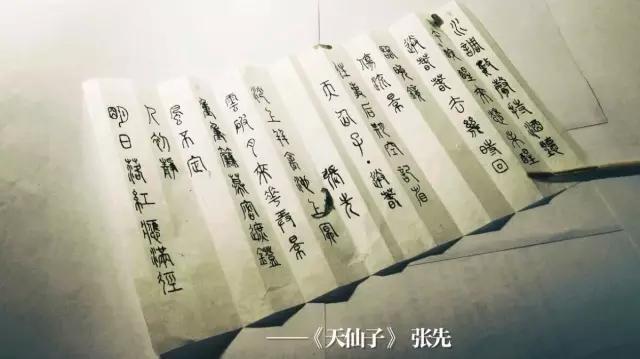 水調數聲持酒聽
午醉醒來愁未醒
送春春去幾時回
臨晚鏡
傷流景
往事后期空記省
天仙子·送春
張先
沙上並禽池上暝
雲破月來花弄影
重重簾幕密遮燈
風不定
人初靜
明日落紅應滿徑
——《天仙子》 张先